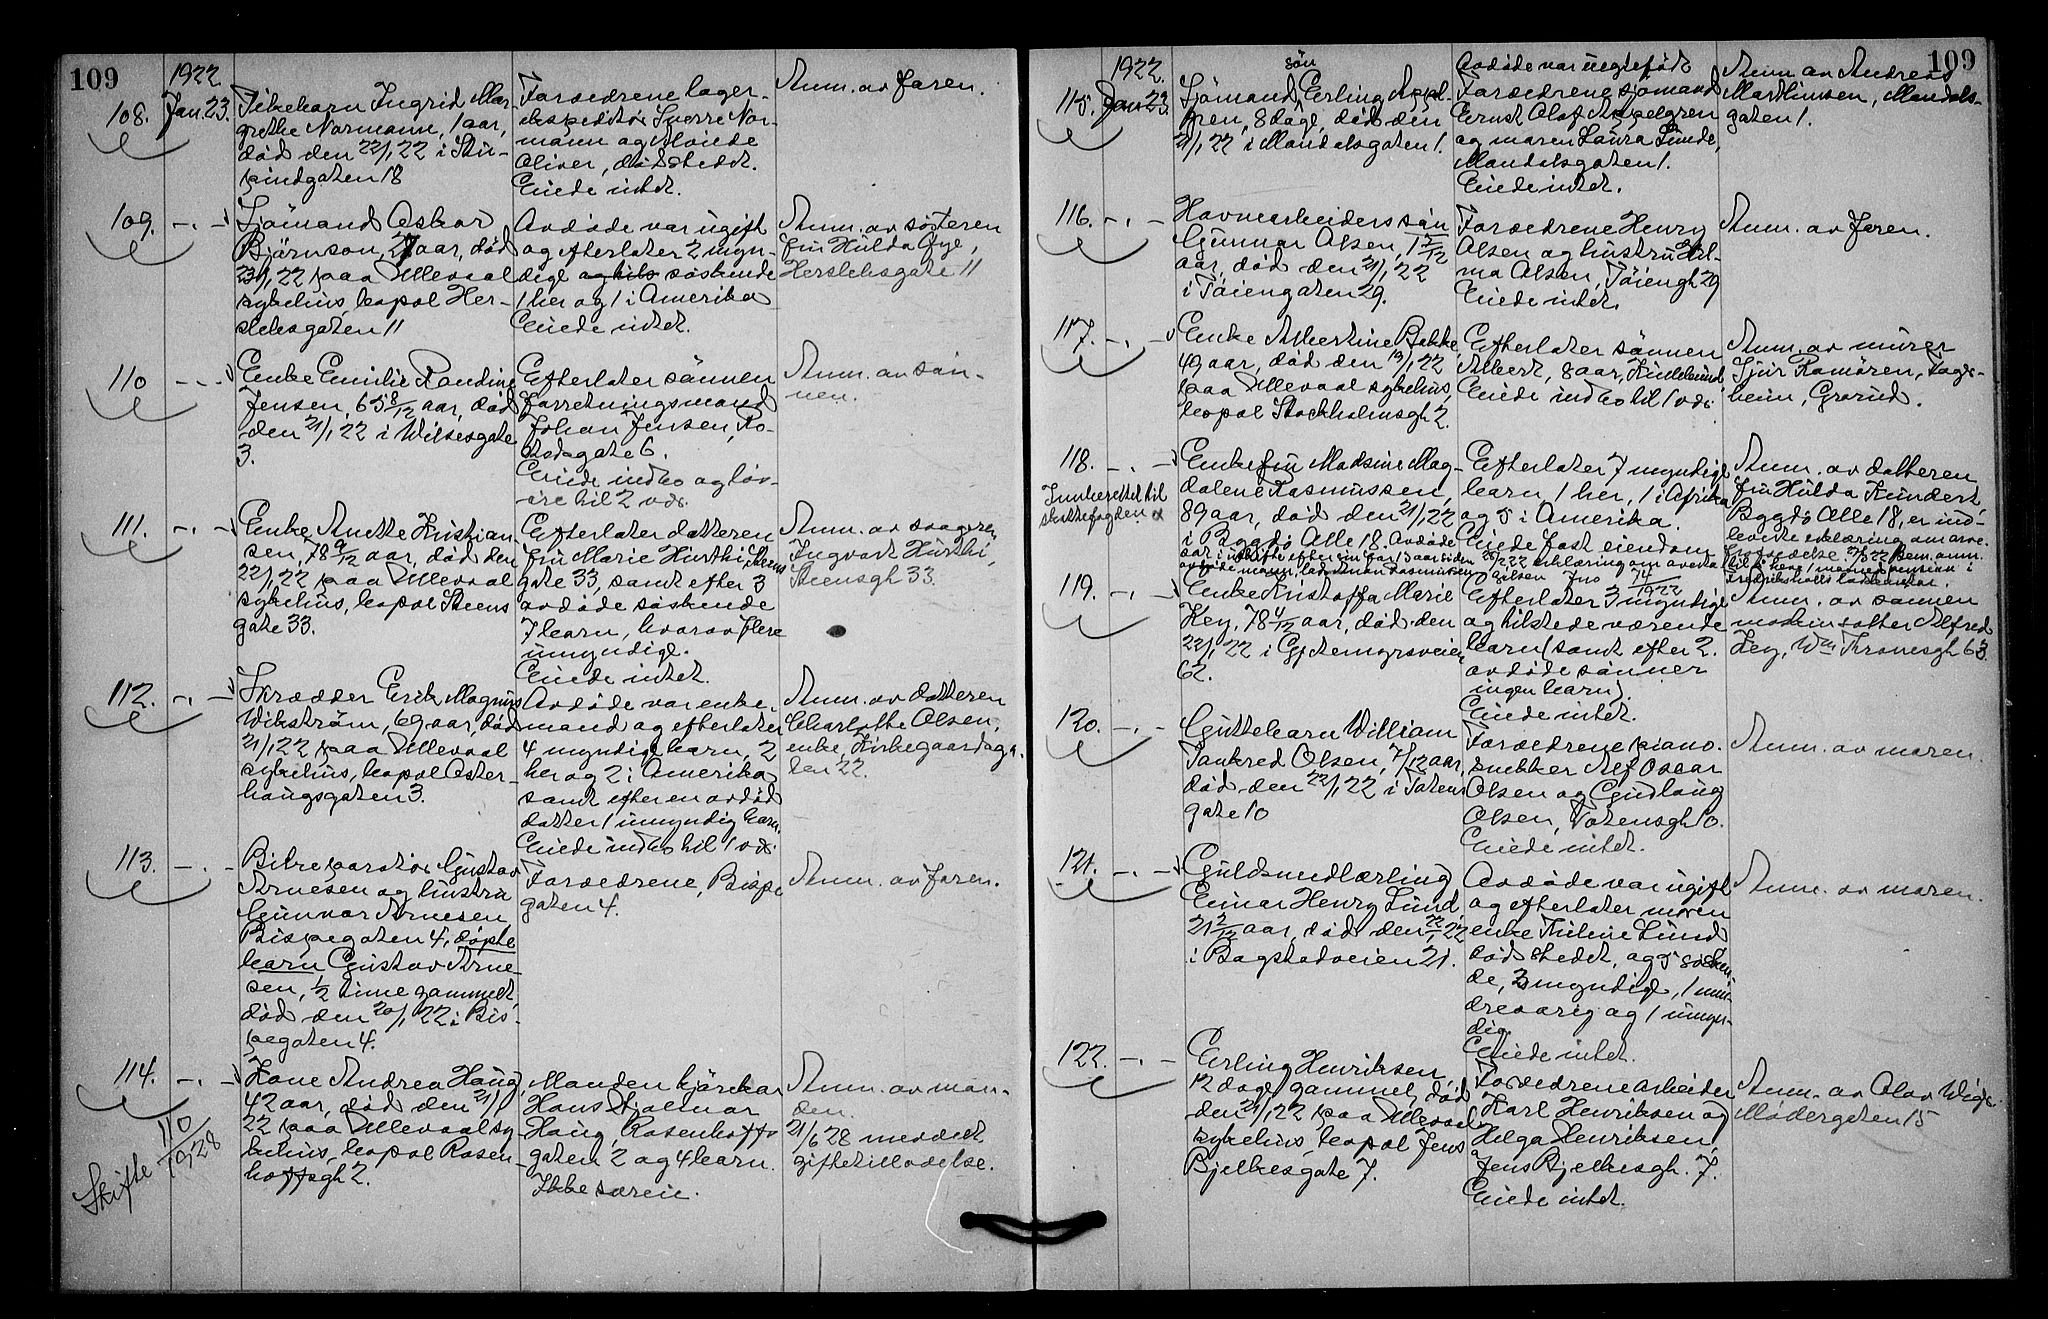 109
1922
108. Jan. 23. Pikebarn Ingrid Mar-
grethe Normann, 1 aar,
död den 22/1 22 i Stu-
pindgaten 18
Forældrene lager-
ekspeditör Sverre Nor-
mann og
Oliver, dödstedet.
Eiede intet.
Anm. av faren.
109. -.- Sjömand Oskar
Björnson, 27 aar, död
23/1 22 paa Ullevaal
sykehus, bopæl Her-
slebsgaten 11
Avdöde var ugift
og efterlater 2 myn-
dige söskende
1 her og 1 i Amerika
Eiede intet.
Anm. av sösteren
fru Hulda
Herslebsgate 11
110 -.- Enke Emilie Randine
Jensen, 65 8/12 aar, död
den 21/1 22 i Wilsesgate
3.
Efterlater sönnen
forretningsmand
Johan Jensen,
gate 6.
Eiede indbo og lös-
öre til 2 vdr.
Anm. av sön-
nen.
111. -.- Enke Anette Kristian
sen, 78 9/12 aar, död den
22/1 22 paa Ullevaal
sykehus, bopæl Steens
gate 33.
Efterlater datteren
fru Marie Hurthi, Steens
gate 33, samt efter 3
avdöde söskende
7 barn, hvorav flere
umyndige.
Eiede intet.
Anm. av svogeren
Ingvart Hurthi,
Steensgt 33.
112. -.- Skrædder Erik Magnus
Wikström, 69 aar, död
21/1 22 paa Ullevaal
sykehus, bopæl Oster-
hausgaten 3.
Avdöde var enke-
mand og efterlater
4 myndige barn, 2
her og 2 i Amerika
samt efter en avdöd
datter 1 umyndig barn.
Eiede indbo til 1 vdr.
Anm. av datteren
Charlotte Olsen,
enke, Kirkegaardsga-
ten 22.
113. -.- Gustav
Arnesen og hustru
Gunvor Arnesen
Bispegaten 4, döpte
barn Gustav Arne-
sen, 1/2 time gammelt,
död den 20/1 22 i Bis-
pegaten 4.
Forældrene, Bispe
gaten 4.
Anm. av faren.
114. -.- Kone Andrea Haug,
42 aar, död den 21/1
22 paa Ullevaal sy-
kehus, bopæl Rosen-
hoffsgt 2.
Skifte 110/10, 28
Manden kjörekar
Hans Hjalmar
Haug, Rosenhoffs
gaten 2 og 4 barn.
Ikke særeie.
Anm. av man-
den.
21/6 28 meddelt
giftetilladelse.
109
1922.
115. Jan 23. Sjömand sön Erling Appel-
gren, 8 dage, död den
21/1 22 i Mandalsgaten 1.
Avdöde var uegtefödt
Forældrene sjömand
Ernst Olaf Appelgren
og moren Laura Lunde,
Mandalsgaten 1.
Eiede intet.
Anm. av Andreas
Marthinsen, Mandals-
gaten 1.
116. -.- Havnearbeiders sön
Gunnar Olsen, 1 5/12
aar, död den 21/1 22
i Töiengaten 29.
Forældrene Henry
Olsen og hustru Hil-
ma Olsen, Töiengt 29
Eiede intet.
Anm. av faren.
117. -.- Enke Albertine Bakke,
49 aar, död den 19/1 22
paa Ullevaal sykehus,
bopæl Stockholmsgt 2.
Efterlater sönnen
Albert, 8 aar,
Eiede indbo til 1 vdr.
Anm. av murer
Sjur Ramören,
heim, Grorud.
118. -.- Enkefru Madsine Mag-
dalene Rasmussen,
89 aar, död den 21/1 22
i Bygdö Alle 18. Avdöde
Innberettet til
skiftefogden
Efterlater 7 myndige
barn 1 her, 1 i Afrika
og 5 i Amerika.
Eiede fast eiendom
Anm. av datteren
fru Hulda Kundert,
Bygdö Alle 18, er ind-
levert erklæring om arve-
119. -.- Enke Kristoffa Marie
Key, 78 4/12 aar, död den
22/1 22 i Gjetemyrsveien
62.
Efterlater 3 myndige
og tilstede værende
barn (samt efter 2
avdöde sönner
ingen barn).
Eiede intet.
Anm. av sönnen
Alfred
Key, Wm Thranesgt 63.
120. -.- Guttebarn William
Tankred Olsen, 7/12 aar,
död den 22/1 22 i Totens
gate 10
Forældrene piano-
snekker Alf Oscar
Olsen og Gudlaug
Olsen, Totensgt 10.
Eiede intet.
Anm. av moren.
121. -.- Guldsmedlærling
Einar Henry Lund
21 2/12 aar, död den 22/1 22
i Bogstadveien 21.
Avdöde var ugift
og efterlater moren
enke Lund
död stedet, og 5 sösken-
de, 3 myndige, 1 min-
dreaarig og 1 umyn-
dig.
Eiede intet.
Anm. av moren.
122. -.- Erling Henriksen
12 dage gammel, död
den 21/1 22 paa Ullevaal
sykehus, bopæl Jens
Bjelkesgate 7.
Forældrene arbeider
Karl Henriksen og
Helga Henriksen,
Jens Bjelkesgt. 7.
Eiede intet.
Anm. av Olav
Mödergaten 15